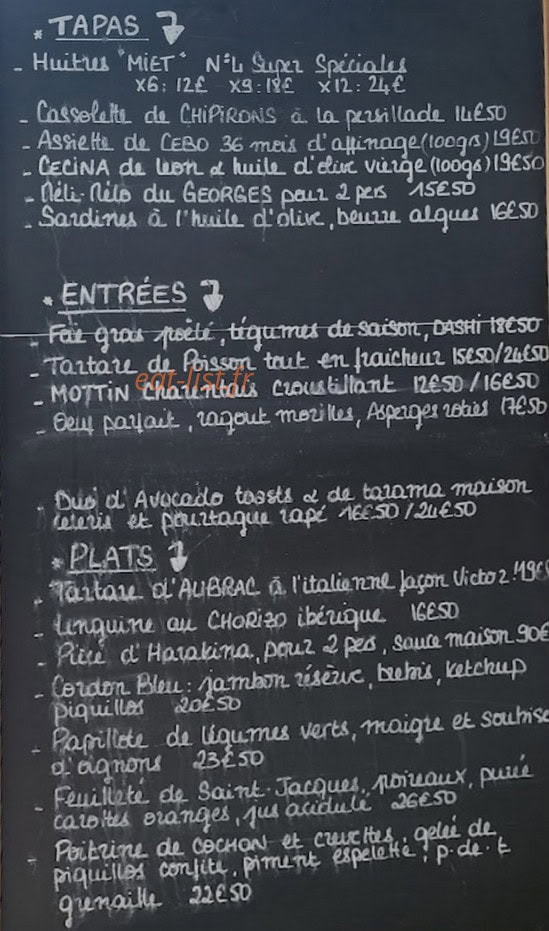 * TAPAS
- Huitres "MIET" N°4 Super Spéciales
x6: 12€ x9: 18€ x12: 24€
- Cassolette de CHIPIRONS à la persillade 14€50
- Assiette de CEBO 36 mois d'affinage (100grs) 19€50
- CECINA de leon & huile d'olive vierge (100grs) 19€50
- Méli-Mélo du GEORGES pour 2 pers 15€50
- Sardines à l'huile d'olive, beurre algues 16€50
* ENTRÉES
- Foie gras poêlé, légumes de saison, DASHI 18€50
- Tartare de Poisson tout en fraicheur 15€50/24€50
eat-list.fr
- MOTTIN Charentais croustillant 12€50/16€50
- Oeuf parfait, ragout morilles, Asperges roties 17€50
- Duo d'Avocado toasts & de tarama maison
celeris et poutargue rapé 16€50/24€50
* PLATS
- Tartare d'AUBRAC à l'italienne façon Victor. 19€
- Linguine au CHORIZO ibérique 16€50
- d'Harakina, pour 2 pers, sauce maison 90€
- Cordon Bleu: jambon réserve, brebis, ketchup
piquillos 20€50
- Papillote de légumes verts, maigre et soubise
d'oignons 23€50
- Feuilleté de Saint-Jacques, poireaux, purée
carottes oranges, jus acidulé 26€50
- Poitrine de COCHON et crevettes, gelée de
piquillos confits, piment espelette, p.de.t
grenaille 22€50